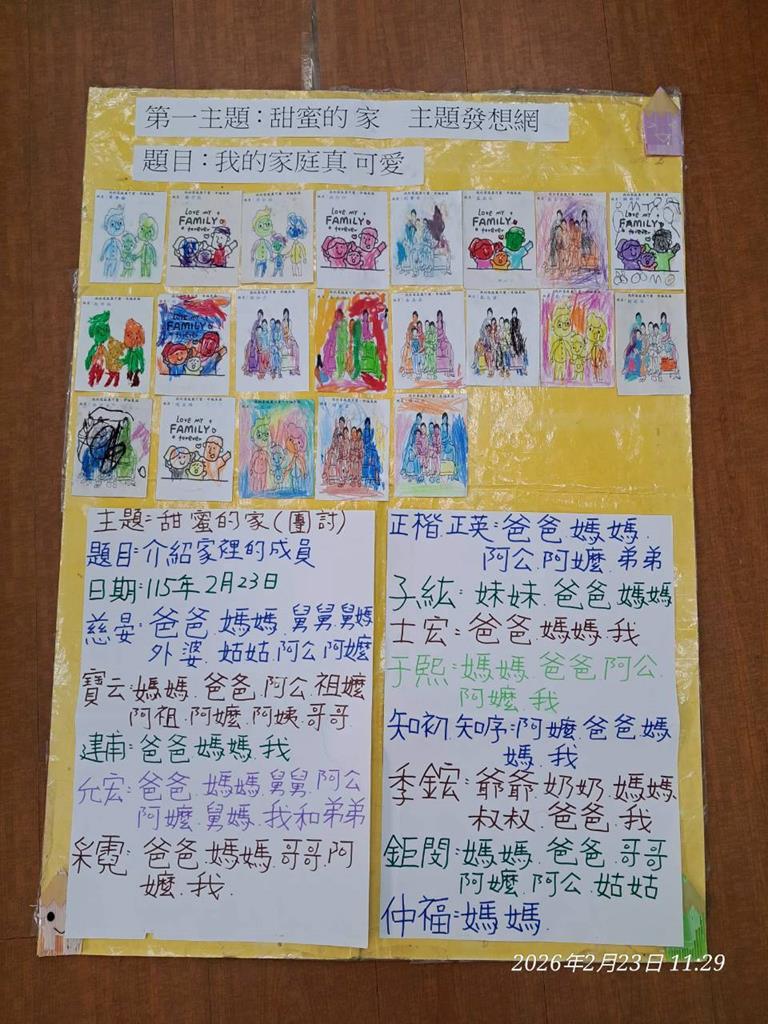 第一主題：甜蜜的 家　主題發想網
題目：我的家庭真 可愛
LOVE MY
FAMILY
forever
LOVE MY
FAMILY
forever
LOVE MY
FAMILY
forever
LOVE MY
FAMILY
forever
LOVE MY
FAMILY
LOVE MY
FAMILY
forever
主題:甜蜜的家(團討)
題目:介紹家裡的成員
日期:115年2月23日
慈晏:爸爸.媽媽.舅舅.舅媽
外婆.姑姑.阿公.阿嬤
寶云:媽媽.爸爸.阿公.祖嬤
阿祖.阿嬤.阿姨.哥哥
建甫:爸爸.媽媽.我
允宏:爸爸.媽媽.舅舅.阿公
阿嬤.舅媽.我和弟弟
采霓:爸爸.媽媽.哥哥.阿
嬤.我.
正楷.正英:爸爸.媽媽.
阿公.阿嬤.弟弟
子紘:妹妹.爸爸.媽媽
士宏:爸爸.媽媽.我
于熙:媽媽.爸爸.阿公.
阿嬤.我
知初.知序:阿嬤.爸爸.媽
媽.我
季鋐:爺爺.奶奶.媽媽
叔叔.爸爸.我
鉅閔:媽媽.爸爸.哥哥
阿嬤.阿公.姑姑
仲福:媽媽.
2026年2月23日 11:29